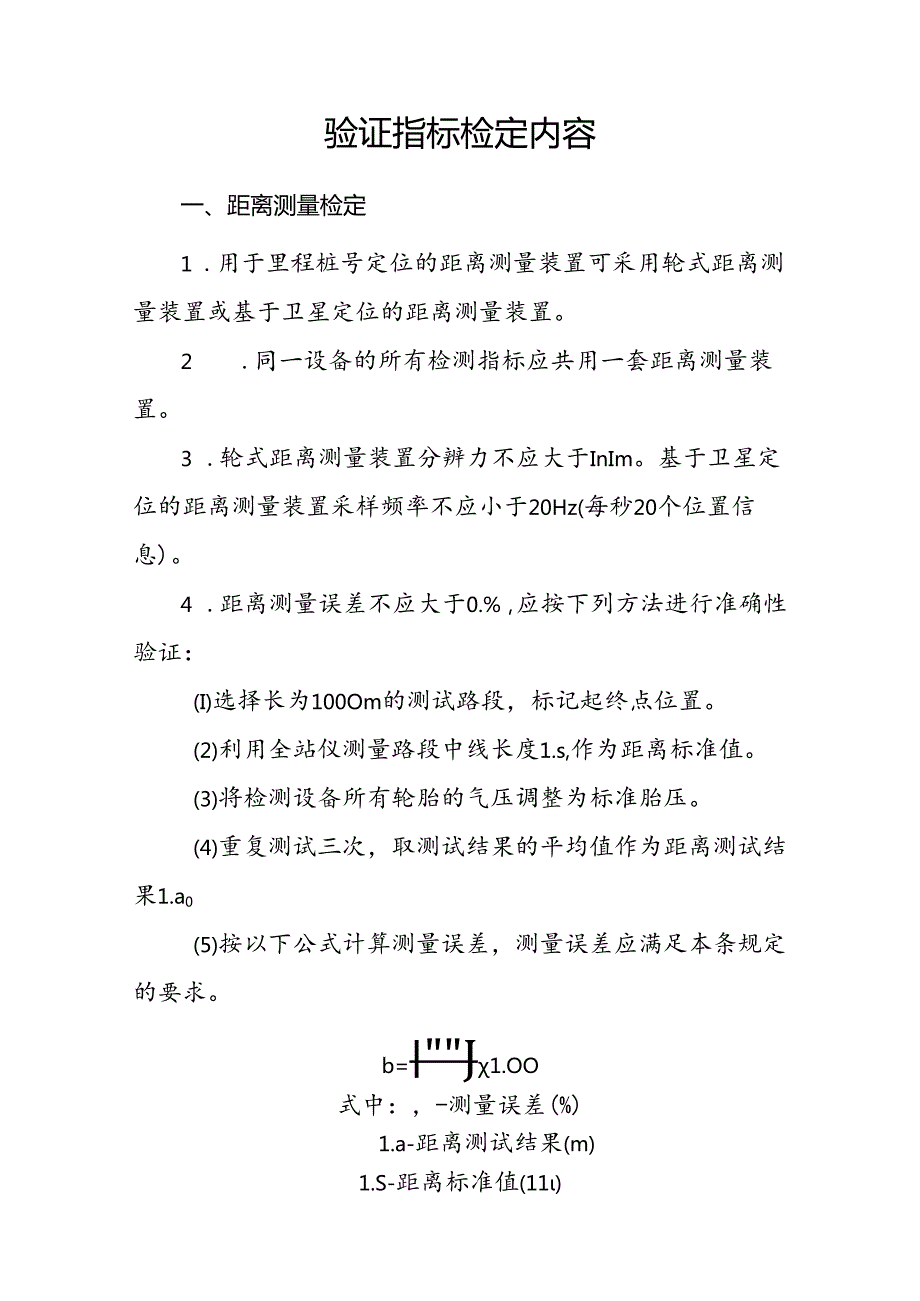 验证指标检定内容
一、距离测量检定
1 .用于里程桩号定位的距离测量装置可采用轮式距离测
量装置或基于卫星定位的距离测量装置。
2 .同一设备的所有检测指标应共用一套距离测量装
置。
3 .轮式距离测量装置分辨力不应大于InIm。基于卫星定
位的距离测量装置采样频率不应小于20Hz(每秒20个位置信
息)。
4 .距离测量误差不应大于0.%,应按下列方法进行准确性
验证：
(I)选择长为100Om的测试路段，标记起终点位置。
(2)利用全站仪测量路段中线长度1.s,作为距离标准值。
(3)将检测设备所有轮胎的气压调整为标准胎压。
(4)重复测试三次，取测试结果的平均值作为距离测试结
果1.a₀
(5)按以下公式计算测量误差，测量误差应满足本条规定
的要求。
b=|""J χ1.OO
式中：，–测量误差(%)
1.a-距离测试结果(m)
1.S-距离标准值(11ι)